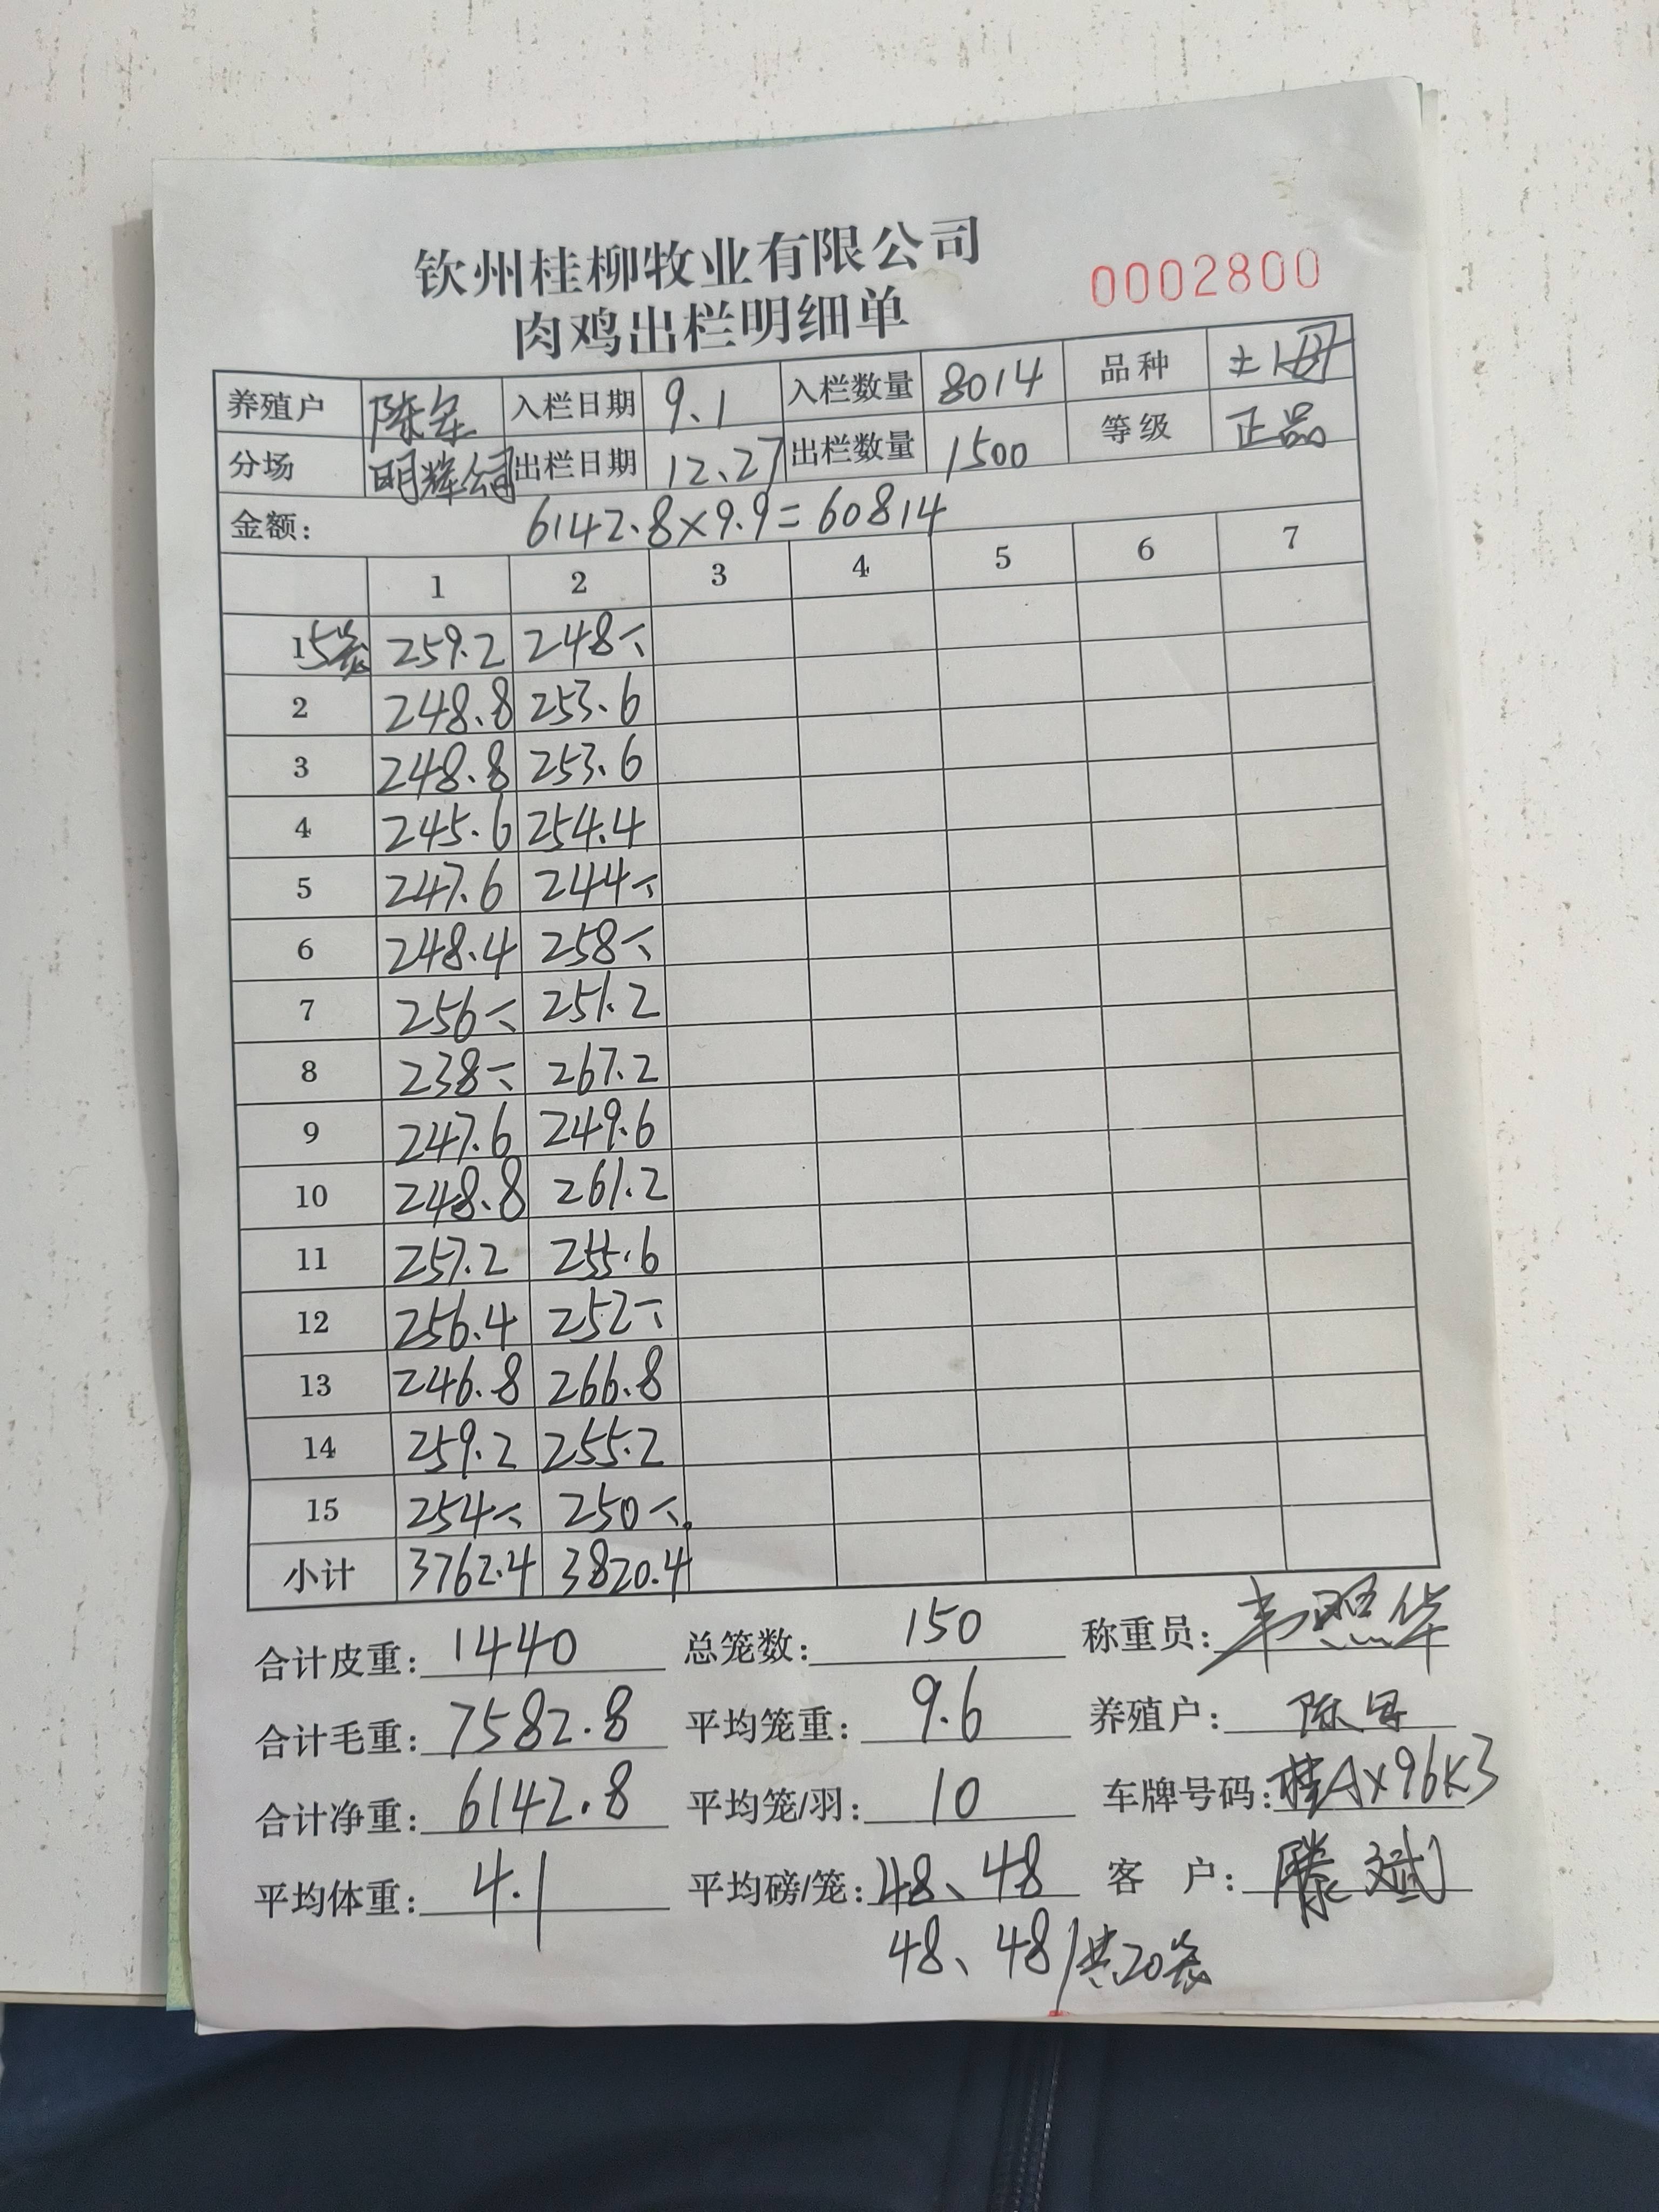 钦州桂柳牧业有限公司
肉鸡出栏明细单
0002800
养殖户 陈 入栏日期 9.1 入栏数量 8014 品种
分场 明辉公司 出栏日期 12.27 出栏数量 1500 等级 正品
金额: 6142.8×9.9=60814
1 2 3 4 5 6 7
1 5 259.2 248
2 248.8 253.6
3 248.8 253.6
4 245.6 254.4
5 247.6 244
6 248.4 258
7 256 251.2
8 238 267.2
9 247.6 249.6
10 248.8 261.2
11 257.2 255.6
12 256.4 252
13 246.8 266.8
14 259.2 255.2
15 254 250
小计 3762.4 3820.4
合计皮重: 1440 总笼数: 150 称重员: 韦照华
合计毛重: 7582.8 平均笼重: 9.6 养殖户: 陈
合计净重: 6142.8 平均笼/羽: 10 车牌号码: 桂AX96K3
平均体重: 4.1 平均磅/笼: 48、48 客 户: 滕斌
48、48/共20